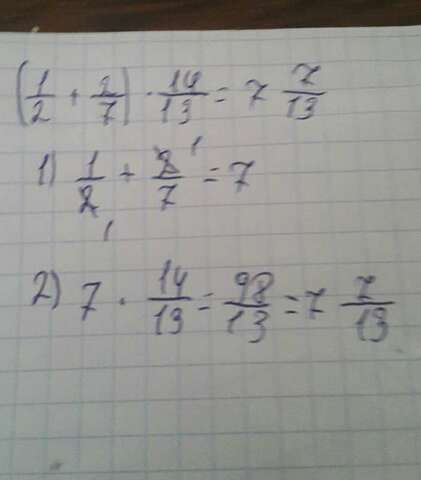 (1/2 + 2/7) · 14/13 = 7 7/13
1) 1/2 + 2/7 = 7
2) 7 · 14/13 = 98/13 = 7 7/13